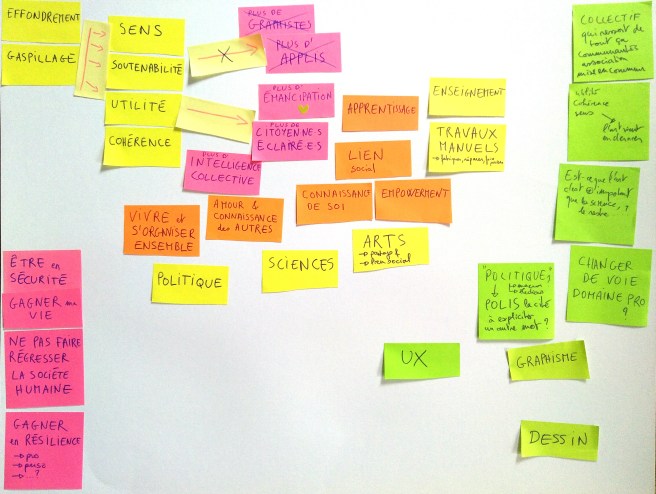 EFFONDREMENT
GASPILLAGE
SENS
SOUTENABILITÉ
UTILITÉ
COHÉRENCE
X
PLUS DE
GRAPHISTES
PLUS D'
APPLIS
PLUS D'
ÉMANCIPATION
PLUS DE
CITOYEN·NE·S
ÉCLAIRÉ·E·S
PLUS D'
INTELLIGENCE
COLLECTIVE
APPRENTISSAGE
LIEN
social
CONNAISSANCE
DE SOI
EMPOWERMENT
AMOUR &
CONNAISSANCE
des AUTRES
VIVRE et
S'ORGANISER
ENSEMBLE
ENSEIGNEMENT
TRAVAUX
MANUELS
ARTS
→ partage &
→ lien social
SCIENCES
POLITIQUE
ÊTRE en
SÉCURITÉ
GAGNER ma
VIE
NE PAS FAIRE
RÉGRESSER
LA SOCIÉTÉ
HUMAINE
GAGNER
en RÉSILIENCE
→ pro
→ perso
→ ...?
COLLECTIF
qui
de
tout ça
communautés
association
mise en commun
cohérence
sens
Est-ce que tout
c'est important
que la science,
le reste
?
CHANGER
DE VOIE
DOMAINE PRO
?
"POLITIQUE"
POLIS la cité
à expliciter
un autre mot ?
UX
GRAPHISME
DESSIN